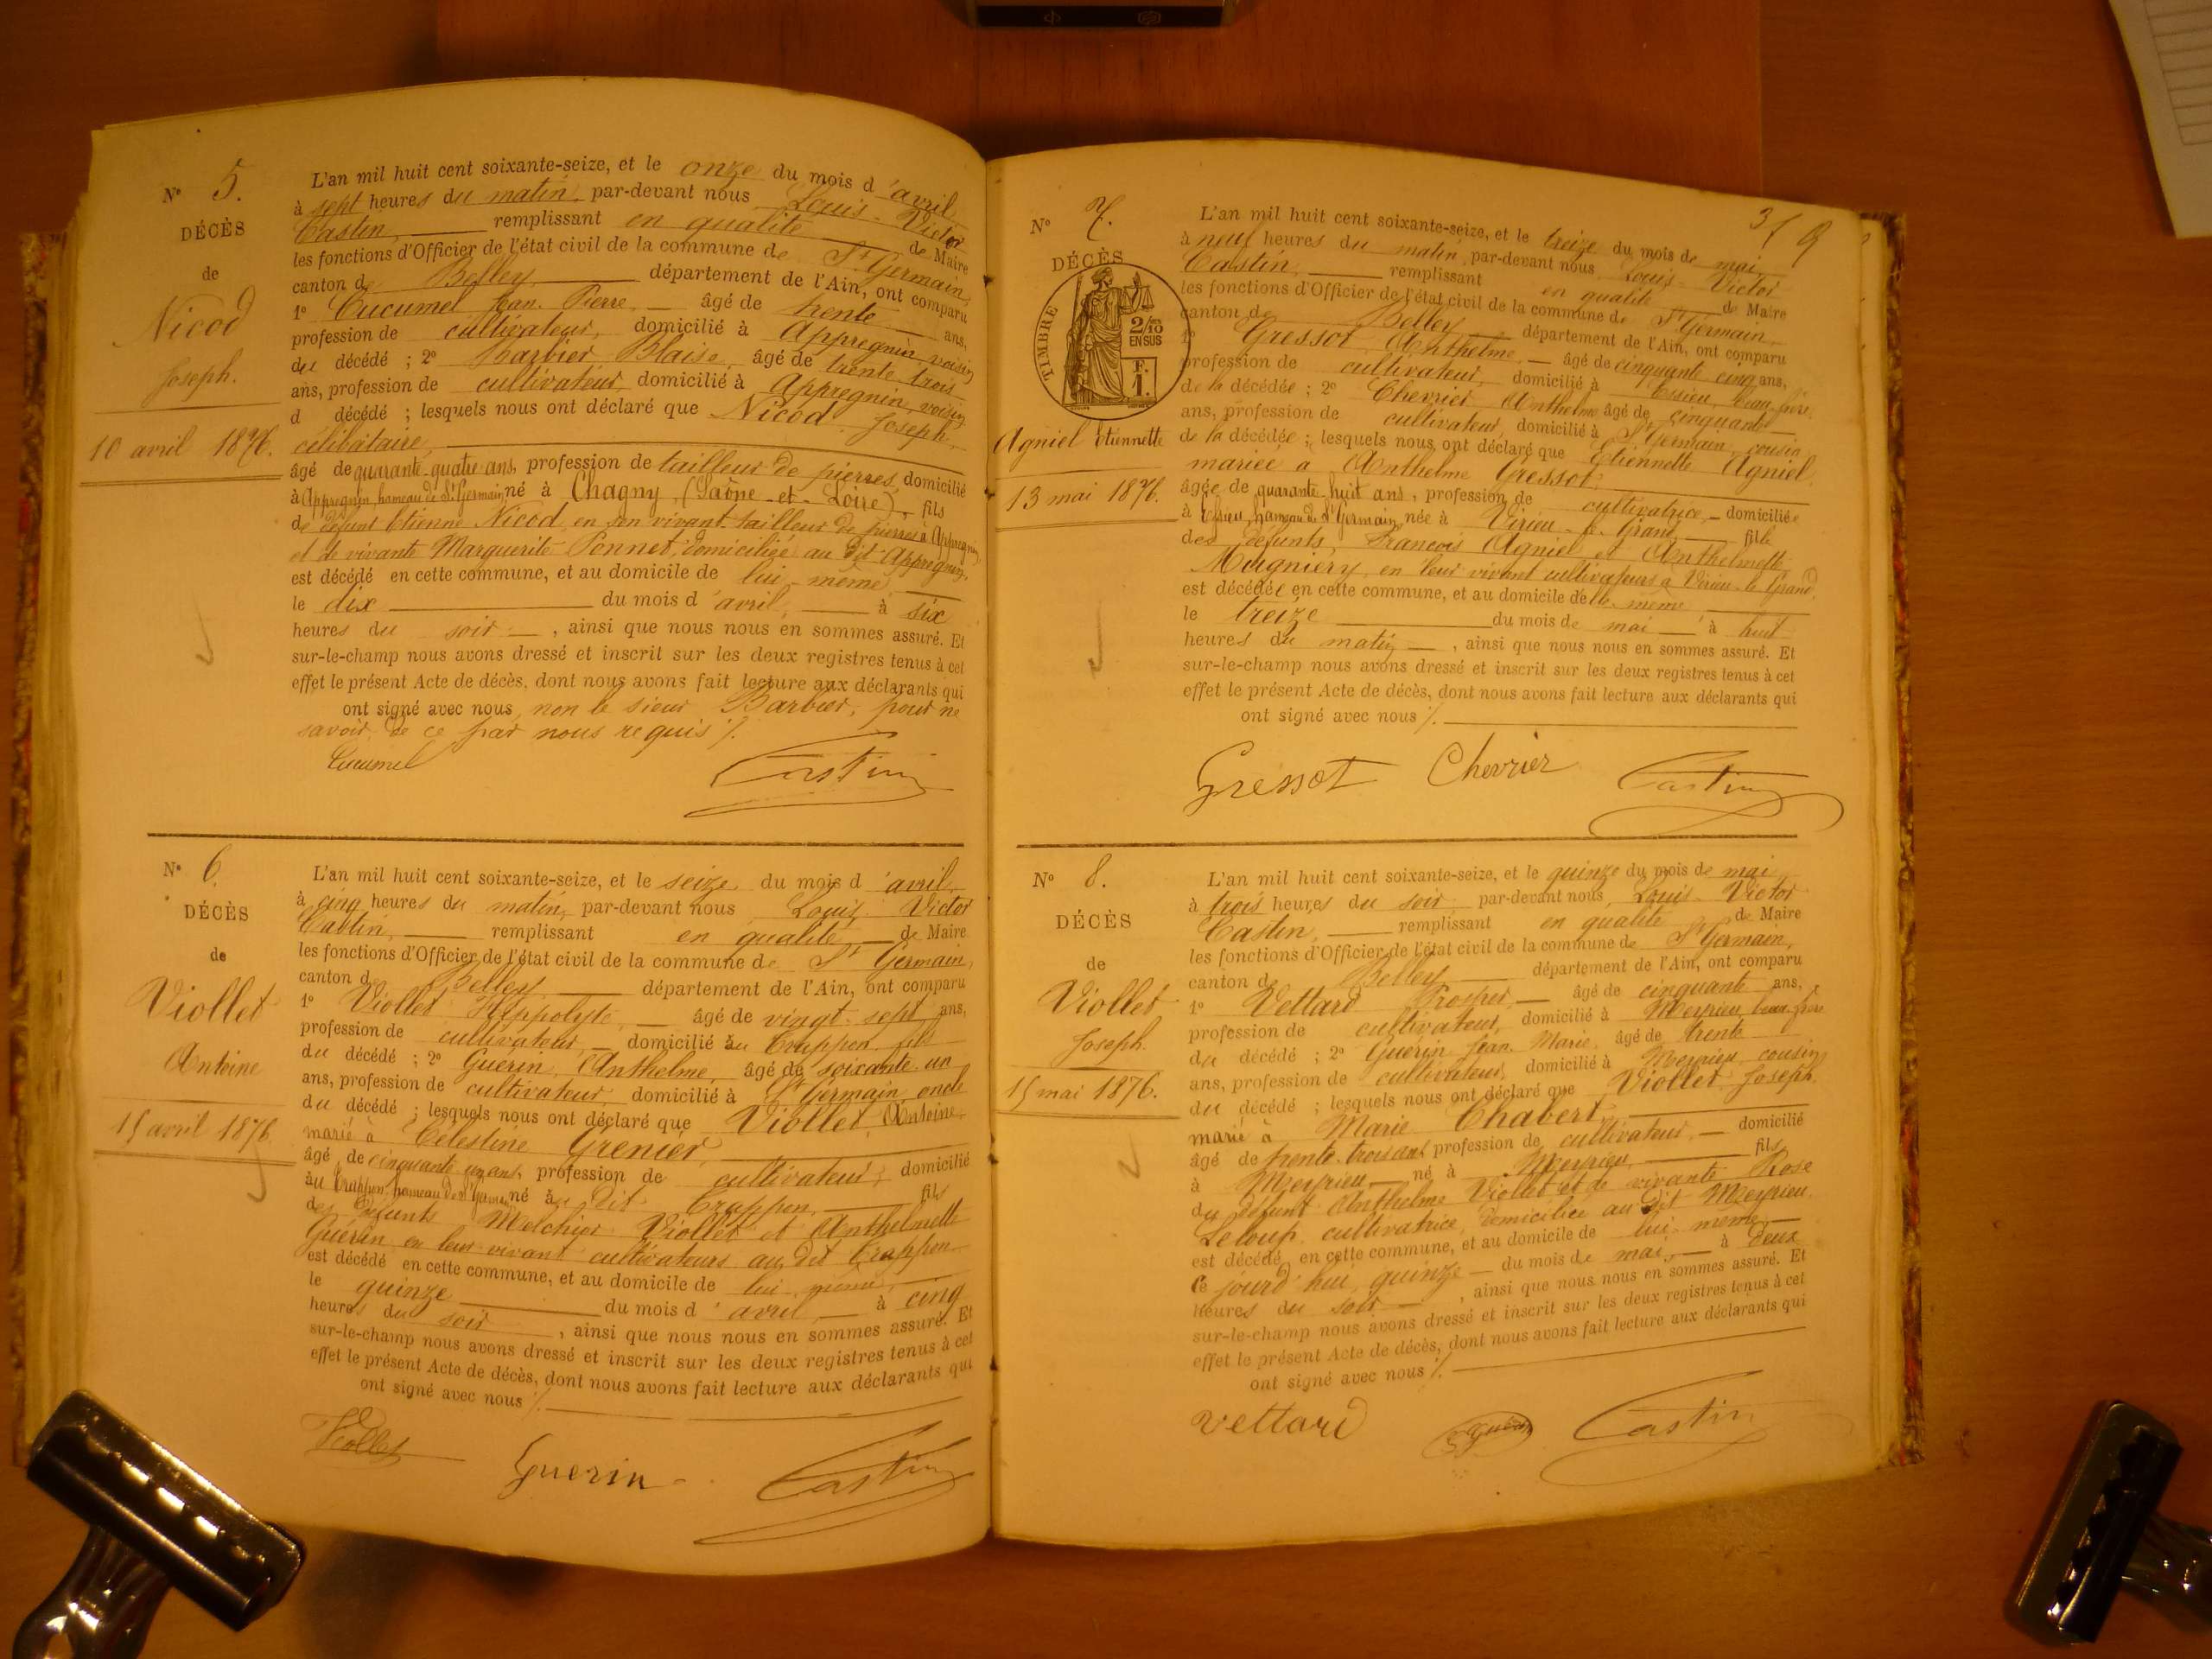 N° 5.
DÉCÈS
de
Nicod
Joseph.
10 avril 1876.
L'an mil huit cent soixante-seize, et le onze du mois d'avril
à sept heures du matin, par-devant nous Louis-Victor
Castin, remplissant en qualité de Maire
les fonctions d'Officier de l'état civil de la commune de St Germain,
canton de Belley département de l'Ain, ont comparu
1° Cucumel Jean-Pierre, âgé de trente ans,
profession de cultivateur, domicilié à Appregnin, voisin
du décédé ; 2° Barbier Blaise, âgé de trente-trois
ans, profession de cultivateur, domicilié à Appregnin, voisin
d décédé ; lesquels nous ont déclaré que Nicod Joseph,
célibataire,
âgé de quarante-quatre ans, profession de tailleur de pierres, domicilié
à Appregnin, hameau de St Germain, né à Chagny (Saône-et-Loire), fils
de défunt Etienne Nicod, en son vivant tailleur de pierres à Appregnin,
et de vivante Marguerite Ponnet, domiciliée au dit Appregnin,
est décédé en cette commune, et au domicile de lui-même,
le dix du mois d'avril, à six
heures du soir, ainsi que nous nous en sommes assuré. Et
sur-le-champ nous avons dressé et inscrit sur les deux registres tenus à cet
effet le présent Acte de décès, dont nous avons fait lecture aux déclarants qui
ont signé avec nous, non le sieur Barbier, pour ne
savoir, de ce par nous requis ./.
Cucumel Castin
N° 6.
DÉCÈS
de
Viollet
Antoine
15 avril 1876
L'an mil huit cent soixante-seize, et le seize du mois d'avril
à cinq heures du matin, par-devant nous Louis-Victor
Castin, remplissant en qualité de Maire
les fonctions d'Officier de l'état civil de la commune de St Germain,
canton de Belley département de l'Ain, ont comparu
1° Viollet Hippolyte, âgé de vingt-sept ans,
profession de cultivateur, domicilié au Crappon, fils
du décédé ; 2° Guérin Anthelme, âgé de soixante-un
ans, profession de cultivateur, domicilié à St Germain, oncle
du décédé ; lesquels nous ont déclaré que Viollet Antoine
marié à Célestine Grenier,
âgé de cinquante-un ans, profession de cultivateur, domicilié
au Crappon, hameau de St Germain, né au dit Crappon, fils
des défunts Melchior Viollet et Anthelmette
Guérin en leur vivant cultivateurs au dit Crappon
est décédé en cette commune, et au domicile de lui-même,
le quinze du mois d'avril à cinq
heures du soir, ainsi que nous nous en sommes assuré. Et
sur-le-champ nous avons dressé et inscrit sur les deux registres tenus à cet
effet le présent Acte de décès, dont nous avons fait lecture aux déclarants qui
ont signé avec nous ./.
Viollet Guerin Castin
3/9
N° 7.
DÉCÈS
TIMBRE
2/10
EN SUS
F.
1.
Agniel Etiennette
13 mai 1876.
L'an mil huit cent soixante-seize, et le treize du mois de mai
à neuf heures du matin, par-devant nous Louis-Victor
Castin, remplissant en qualité de Maire
les fonctions d'Officier de l'état civil de la commune de St Germain,
canton de Belley département de l'Ain, ont comparu
1° Gressot Anthelme, âgé de cinquante-cinq ans,
profession de cultivateur, domicilié à Essieu, beau-frère
de la décédée ; 2° Chevrier Anthelme âgé de cinquante
ans, profession de cultivateur, domicilié à St Germain, cousin
de la décédée ; lesquels nous ont déclaré que Etiennette Agniel
mariée à Anthelme Gressot,
âgée de quarante-huit ans, profession de cultivatrice, domiciliée
à Essieu, hameau de St Germain, née à Virieu-le-Grand, fille
des défunts, François Agniel et Anthelmette
Mugniery, en leur vivant cultivateurs à Virieu-le-Grand,
est décédée en cette commune, et au domicile d'elle-même
le treize du mois de mai à huit
heures du matin, ainsi que nous nous en sommes assuré. Et
sur-le-champ nous avons dressé et inscrit sur les deux registres tenus à cet
effet le présent Acte de décès, dont nous avons fait lecture aux déclarants qui
ont signé avec nous ./.
Gressot Chevrier Castin
N° 8.
DÉCÈS
de
Viollet
Joseph.
15 mai 1876.
L'an mil huit cent soixante-seize, et le quinze du mois de mai
à trois heures du soir par-devant nous, Louis-Victor
Castin, remplissant en qualité de Maire
les fonctions d'Officier de l'état civil de la commune de St Germain,
canton de Belley département de l'Ain, ont comparu
1° Vettard Prosper âgé de cinquante ans,
profession de cultivateur, domicilié à Meyrieu, beau-frère
du décédé ; 2° Guérin Jean-Marie, âgé de trente
ans, profession de cultivateur, domicilié à Meyrieu, cousin
du décédé ; lesquels nous ont déclaré que Viollet Joseph,
marié à Marie Chabert,
âgé de trente-trois ans, profession de cultivateur, domicilié
à Meyrieu né à Meyrieu, fils
du défunt Anthelme Viollet et de vivante Rose
Leloup, cultivatrice, domiciliée au dit Meyrieu
est décédé en cette commune, et au domicile de lui-même,
ce jourd'hui, quinze du mois de mai, à deux
heures du soir, ainsi que nous nous en sommes assuré. Et
sur-le-champ nous avons dressé et inscrit sur les deux registres tenus à cet
effet le présent Acte de décès, dont nous avons fait lecture aux déclarants qui
ont signé avec nous ./.
Vettard Guérin Castin